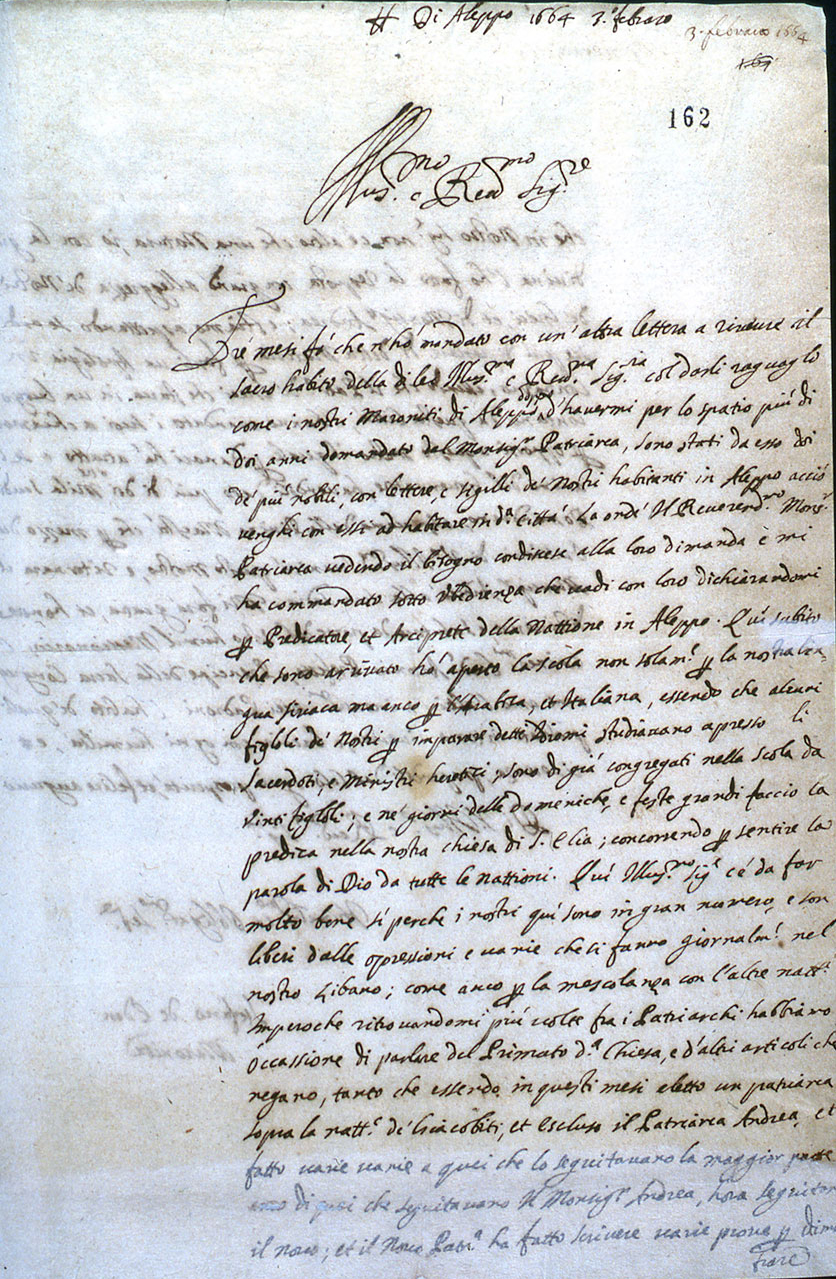 # Di Aleppo 1664 3. febraro
3. febraro 1664
162
Illus.mo e Reu.mo Sig.re
Tré mesi fa' che n'hó mandato con un'altra lettera a riuerire il
sacro habito della di lei Illus.ma e Reu.ma Sig.ria col darli raguaglo
come i nostri Maroniti di Aleppo d'hauermi per lo spatio piú di
doi anni domandato dal Monsig.r Patriarca, sono stati da esso doi
de' piu' nobili, con lettere, e sigilli de' Nostri habitanti in Aleppo acciò
venghi con essi ad habitare in d.a Città. La onde Il Reuerend.mo Mons.r
Patriarca uedendo il bisogno condiscese alla loro dimanda è mi
ha commandato sotto obedienza che uadi con loro dichiarandomi
p Predicatore, et Arciprete della Nattione in Aleppo. Qui subito
che sono arriuato hó aperto la scola non solam.te p la nostra lin-
gua siriaca ma anco p l'Arabica, et Italiana, essendo che alcuni
figlioli de' Nostri p imparare detti Idiomi studiauano apresso li
sacerdoti, e Ministri heretici, sono di giá congregati nella scola da
uinti figlioli; e ne' giorni delle domeniche, e feste grandi faccio la
predica nella nostra chiesa di S. Elia; concorrendo p sentire la
parola di Dio da tutte le nattioni. Qui Illus.mo Sig.r c'é da far
molto bene si perche i nostri qui sono in gran numero, e son
liberi dalle oppressioni e uarie che si fanno giornalm.te nel
nostro Libano; come anco p la mescolanza con l'altre natt.i
Imperoche ritrouandomi piú uolte fra i Patriarchi habbiamo
occassione di parlare del Primato d.a Chiesa, e d'altri articoli che
negano, tanto che essendo in questi mesi eletto un patriarca
sopra la natt.e de' Giacobiti, et escluso il Patriarca Andrea, et
fatto uarie uarie a quei che lo seguitauano la maggior parte
di quei che seguitauano Il Monsig.r Andrea, hora seguitan
il nouo; et il Nouo Patr.a ha fatto scriuere uarie proue p dimo
strare